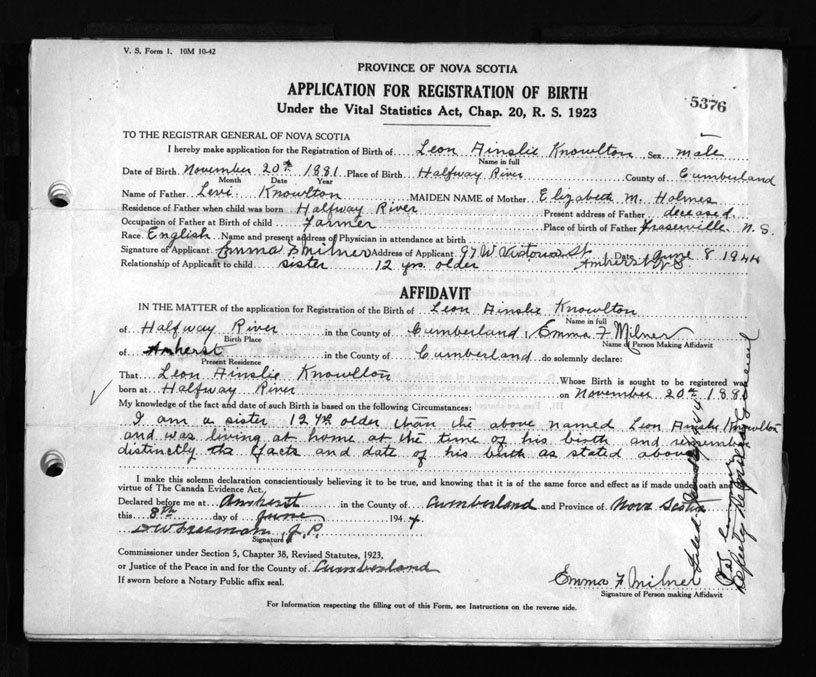 V. S. Form 1. 10M 10-42
PROVINCE OF NOVA SCOTIA
APPLICATION FOR REGISTRATION OF BIRTH
Under the Vital Statistics Act, Chap. 20, R. S. 1923
5376
TO THE REGISTRAR GENERAL OF NOVA SCOTIA
I hereby make application for the Registration of Birth of Leon Ainslie Knowlton Sex male
Name in full
Date of Birth November 20th 1881 Place of Birth Halfway River County of Cumberland
Month Date Year
Name of Father Levi Knowlton MAIDEN NAME of Mother Elizabeth M. Holmes
Residence of Father when child was born Halfway River Present address of Father deceased.
Occupation of Father at Birth of child Farmer Place of birth of Father Fraserville N.S.
Race English Name and present address of Physician in attendance at birth
Signature of Applicant Emma F Milner Address of Applicant 97 W Victoria St Date June 8 1944
Relationship of Applicant to child sister 12 yrs. older Amherst N.S.
AFFIDAVIT
IN THE MATTER of the application for Registration of the Birth of Leon Ainslie Knowlton
Name in full
of Halfway River in the County of Cumberland, Emma F Milner
Birth Place Name of Person Making Affidavit
of Amherst in the County of Cumberland do solemnly declare:
Present Residence
That Leon Ainslie Knowlton Whose Birth is sought to be registered was
born at Halfway River on November 20th 1881
My knowledge of the fact and date of such Birth is based on the following Circumstances:
I am a sister 12 yr. older than the above named Leon Ainslie Knowlton
and was living at home at the time of his birth and remember
distinctly the facts and date of his birth as stated above
I make this solemn declaration conscientiously believing it to be true, and knowing that it is of the same force and effect as if made under oath and
virtue of The Canada Evidence Act,
Declared before me at Amherst in the County of Cumberland and Province of Nova Scotia
this 8th day of June 1944
D W Freeman J.P.
Signature
Commissioner under Section 5, Chapter 38, Revised Statutes, 1923,
or Justice of the Peace in and for the County of Cumberland
If sworn before a Notary Public affix seal.
Emma F Milner
Signature of Person making Affidavit
For Information respecting the filling out of this Form, see Instructions on the reverse side.
Filed
Deputy Registrar General